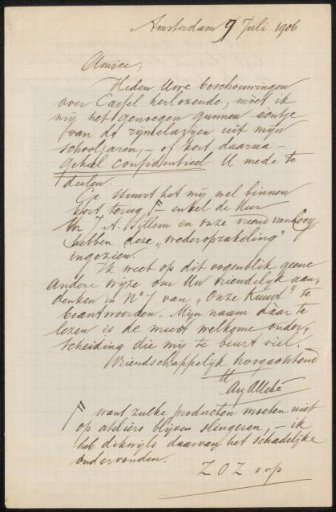 Amsterdam 9 Juli 1906
Amice,
Heden Uwe beschouwingen
over Capel herlezende, moet ik
mij het genoegen gunnen eentje
van de rijmelazijen uit mijn
schooljaren, – of kort daarna –
geheel confidentieel U mede te
deelen
Ge stuurt het mij wel binnen
kort terug F – enkel de Heer
A.
en onze vriend
hebben deze „wederoprakeling”
ingezien.
Ik weet op dit oogenblik geene
andere wijze om Uw vriendelijk aan-
denken in No 7 van „Onze Kunst” te
beantwoorden. Mijn naam dáár te
lezen is de meest welkome onder-
scheiding die mij te beurt viel.
Vriendschappelijk hoogachtend
Aug Allebé
F want zulke producten moeten niet
op ateliers blijven slingeren – ik
heb dikwijls daarvan het schadelijke
ondervonden.
Z O Z svp